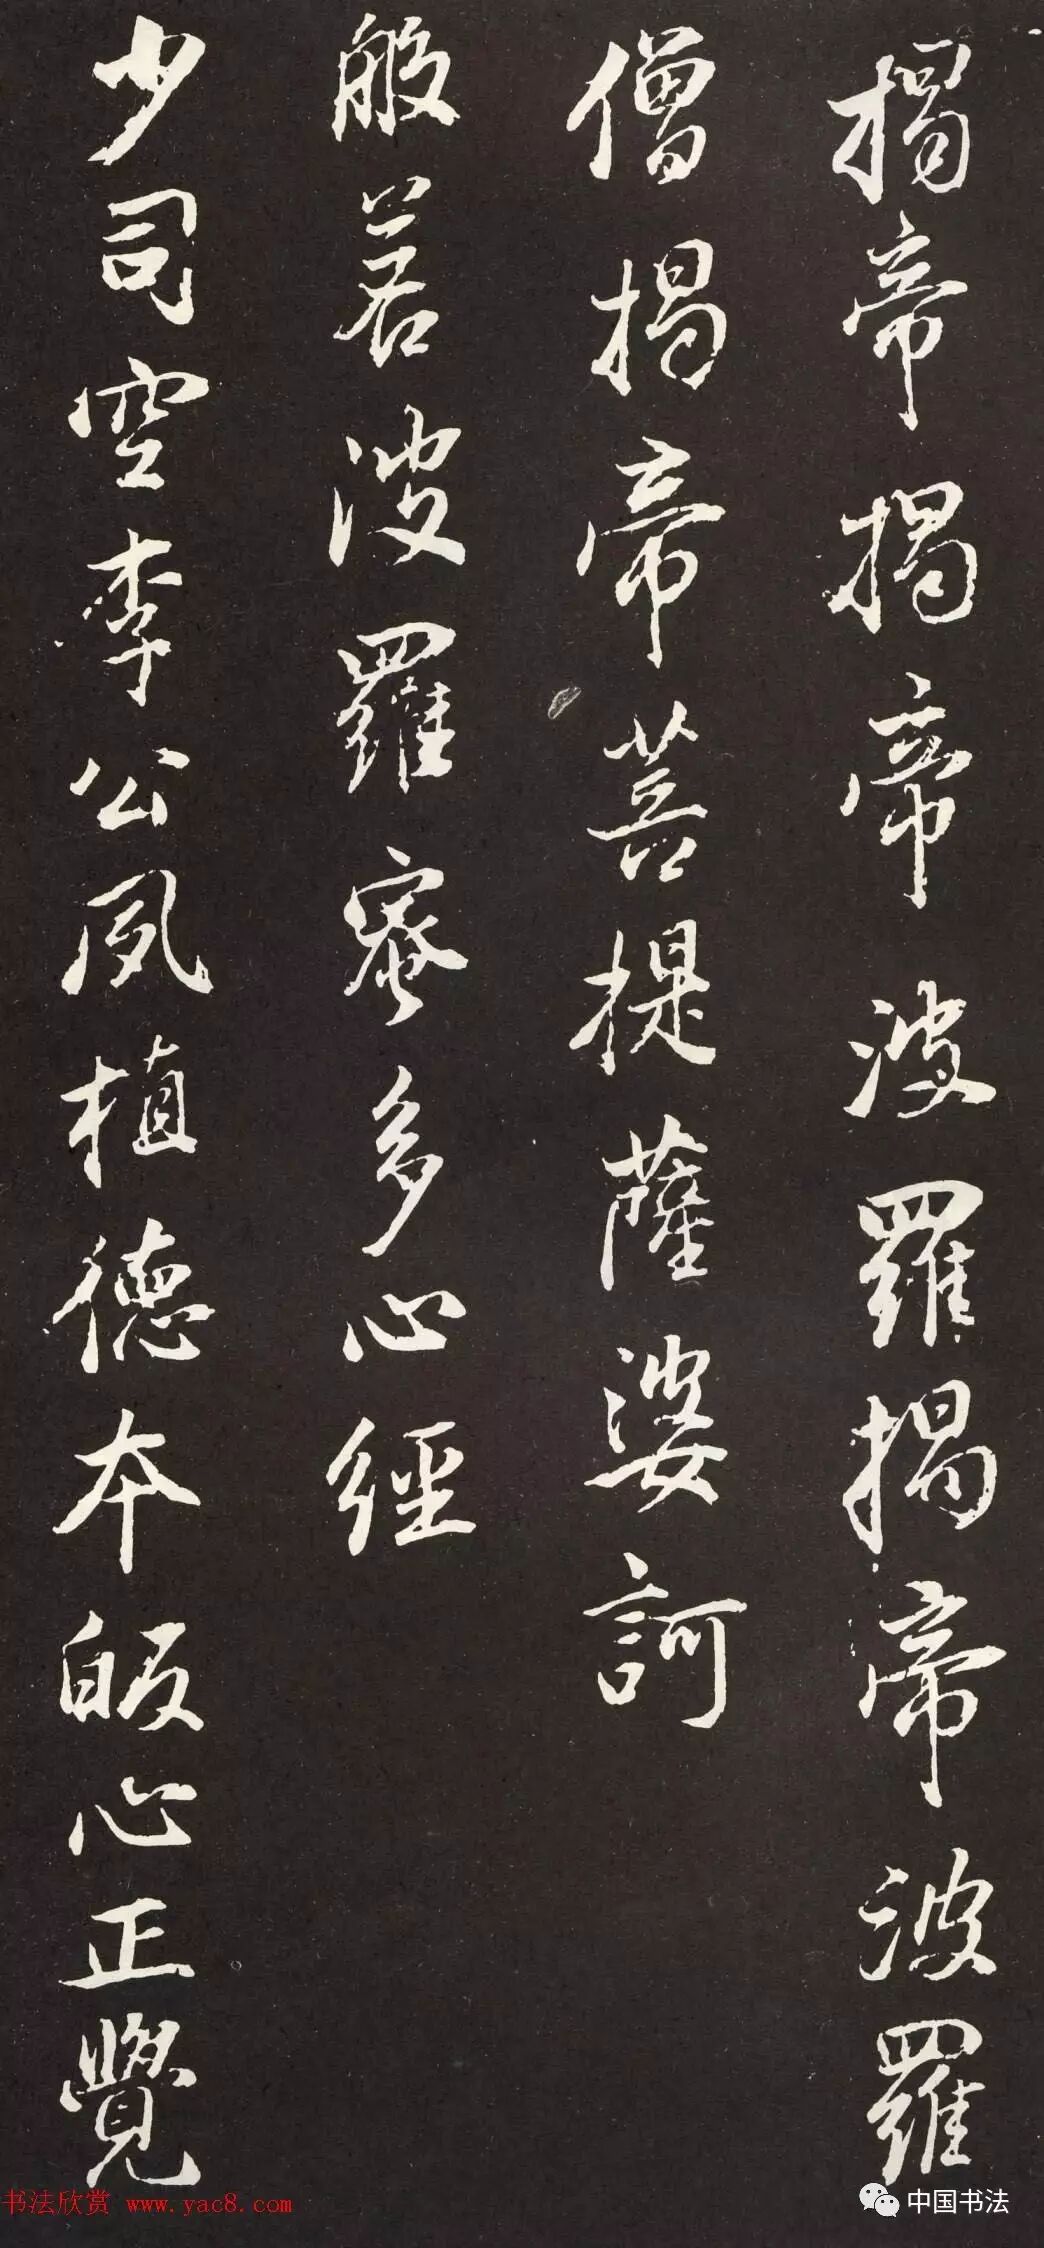 揭帝揭帝波羅揭帝波羅
僧揭帝菩提薩婆訶
般若波羅蜜多心經
少司空李公夙植德本皈心正覺
书法欣赏 www.yac8.com
中国书法